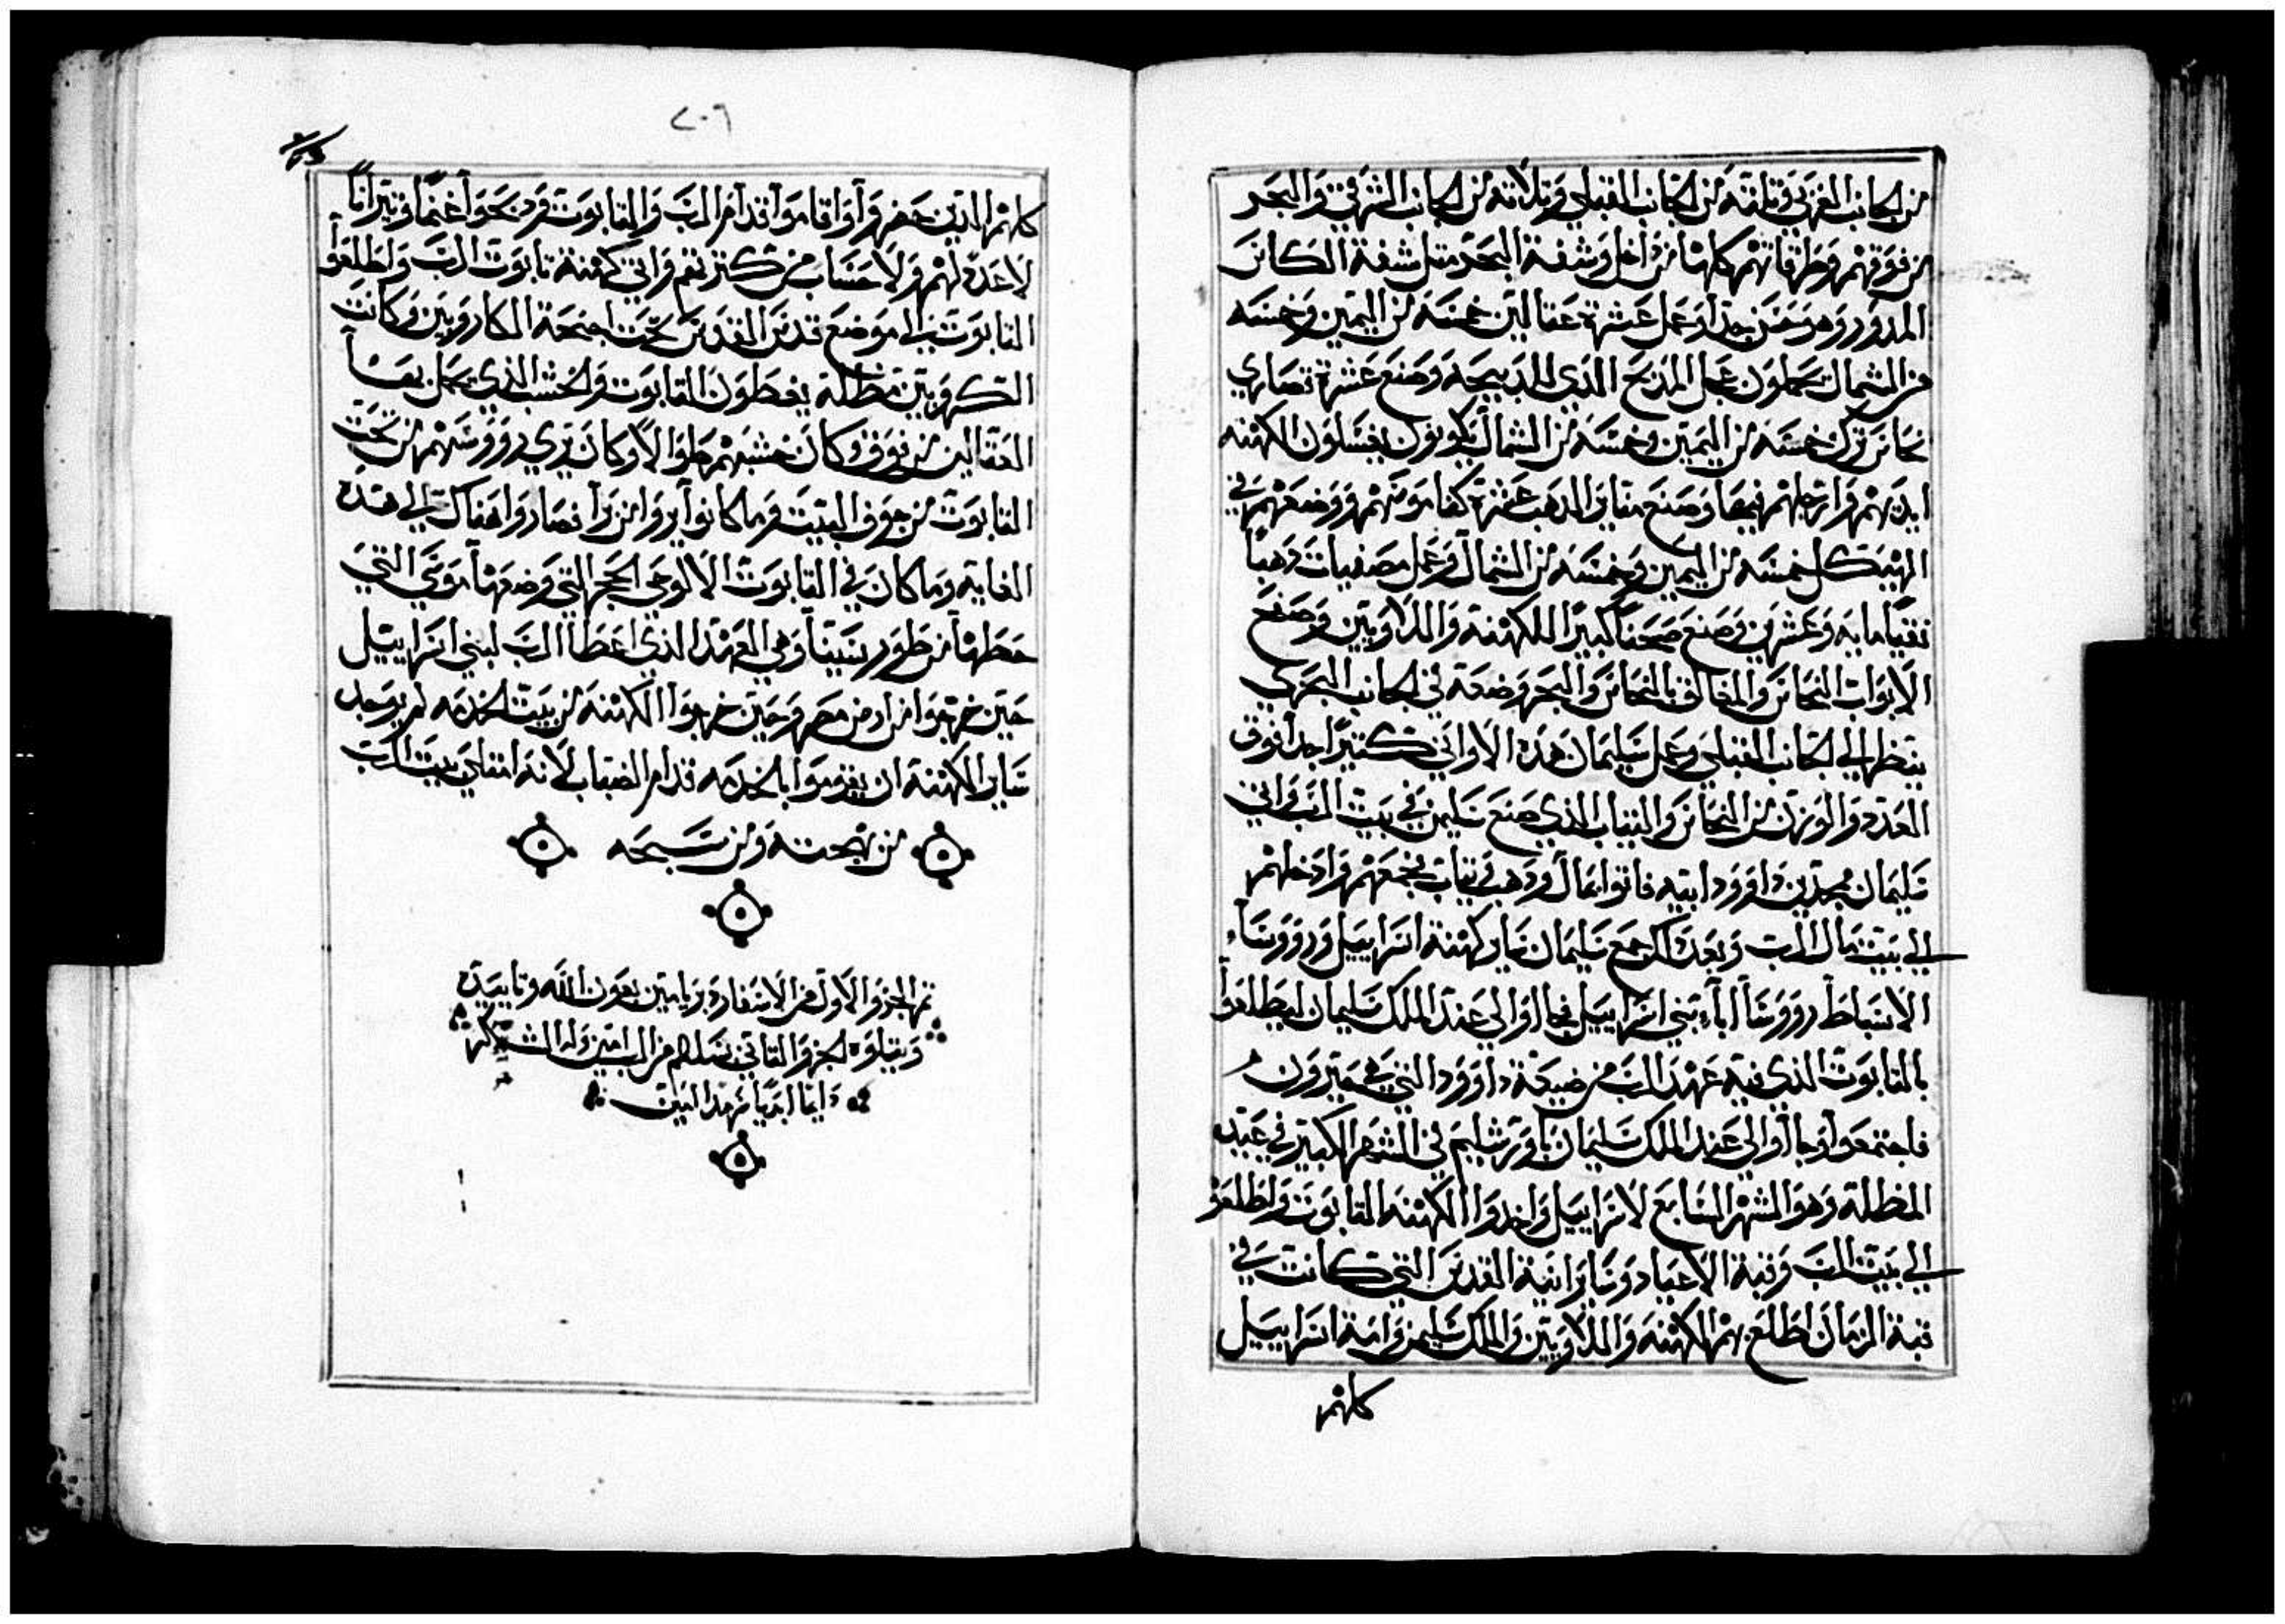 من الجانب الغربي وتلتة من الجانب القبلي وتلاتة من الجانب الشرقي والبحر
من فوقهم وطرقاتهم كلها من داخل وشفة البحر متل شفة الكاس
المدور وهو حسن جدا وعمل عشرة غتالين خمسه من اليمين وخمسه
من الشمال يحملون عجل المدبح الذي للدبيحه وصنع عشرة قصاري
نحاس ترك خمسه من اليمين وخمسه من الشمال ليكونون يغسلون الكهنه
ايديهم وارجلهم فيها وصنع مناير الدهب عشرة كناموسهم ووضعهم في
الهيكل خمسه من اليمين وخمسه من الشمال وعمل مصفيات دهبا
نقيا مايه وعشرين وصنع صحنا كبيرا للكهنة واللاويين وصفح
الابواب النحاس والمغالق بالنحاس والبحر وضعه في الجانب البحري
ينظر الي الجانب القبلي وعمل سليمان هده الاواني كتيرا جدا فوق
العدد والوزن من النحاس والتياب الذي صنع سليمن في بيت الرب واتي
سليمان بمجد بن داوود ابيه فاتوا بمال ودهب وتياب فجمعهم وادخلهم
الي بيت مال الرب وبعد دلك جمع سليمان ساير كهنة اسراييل ورووساء
الاسباط رووسا اباء بني اسراييل فجااوا الي عند الملك سليمان ليطلعوا
بالتابوت الذي فيه عهد الرب من ضيعة داوود التي هي صيرون
فاجتمعوا وجااوا الي عند الملك سليمان باورشليم في الشهر الكبير في عيد
المظلة وهو الشهر السابع لاسراييل واخدوا الكهنه التابوت واطلعو
الي بيت الرب وقبة الاعياد وساير انية القدس التي كانت في
قبة الزمان اطلع بهم الكهنه واللاويين والملك سليمن وامة اسراييل
كلهم
٢٠٦
كلهم الذين حضروا واقاموا قدام الرب والتابوت ودبحوا غنما وتيرانا
لا عدد لهم ولا حساب من كترتهم واتي كهنة تابوت الرب واطلعوا
التابوت الي موضع قدس القدس تحت اجنحة الكاروبين وكانت
الكروبين مظلة يغطون التابوت والخشب الذي يحمل بها
العتالين من فوق وكان خشبهم طوالا وكان يري رووسهم من تحت
التابوت من جوف البيت وما كانوا يروا من برا فصاروا هناك الي هده
الغايه وما كان في التابوت الا لوحي الحجر التي وضعها موسي التي
حطها من طور سينا وهي العهد الذي اعطا الرب لبني اسراييل
حين خرجوا من ارض مصر وحين خرجوا الكهنه من بيت الخدمه لم يوجد
ساير الكهنة ان يقوموا بالخدمه قدام الضباب لانه امتلي بيت الرب
من بهجته ومن تسبيحه
تم الجزو الاول من الاسفار دبريامين بعون الله وتاييده
ويتلوه الجزو التاني بسلام من الرب امين وله الشكر
دايما ابديا سرمدا امين